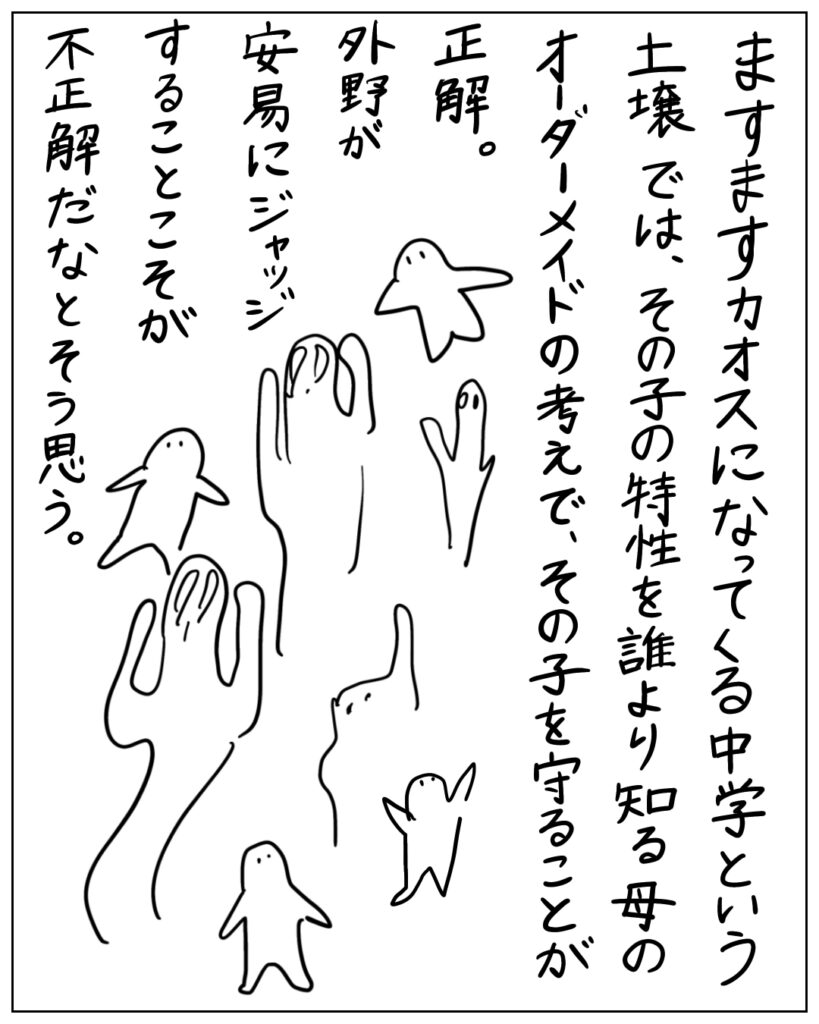 ますますカオスになってくる中学という
土壌では、その子の特性を誰より知る母の
オーダーメイドの考えで、その子を守ることが
正解。
外野が
安易にジャッジ
することこそが
不正解だなとそう思う。